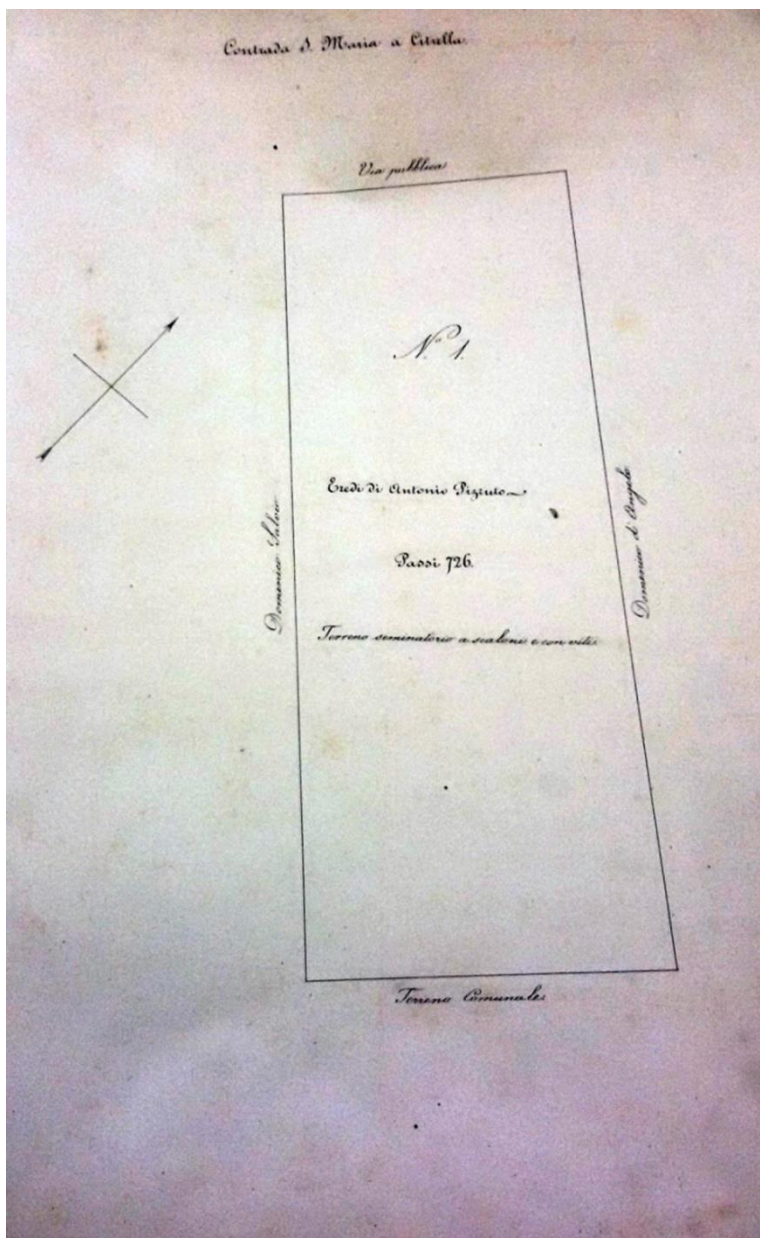 Contrada S. Maria a Citrella.
Via pubblica
N.º 1.
Eredi di Antonio Pizzuto
Passi 726.
Terreno seminatorio a scaloni e con viti
Domenico Salvo
Domenico d'Angelo
Terreno Comunale